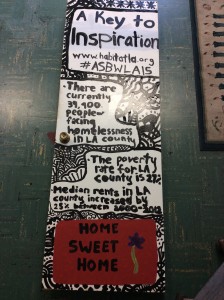 A Key to
Inspiration
www.habitatla.org
#ASBWLA15
· There are
currently
39,400
people
facing
homelessness
in LA county
· The poverty
rate for LA
county is 27%
Median rents in LA
county increased by
25% between 2000-2012
HOME
SWEET
HOME